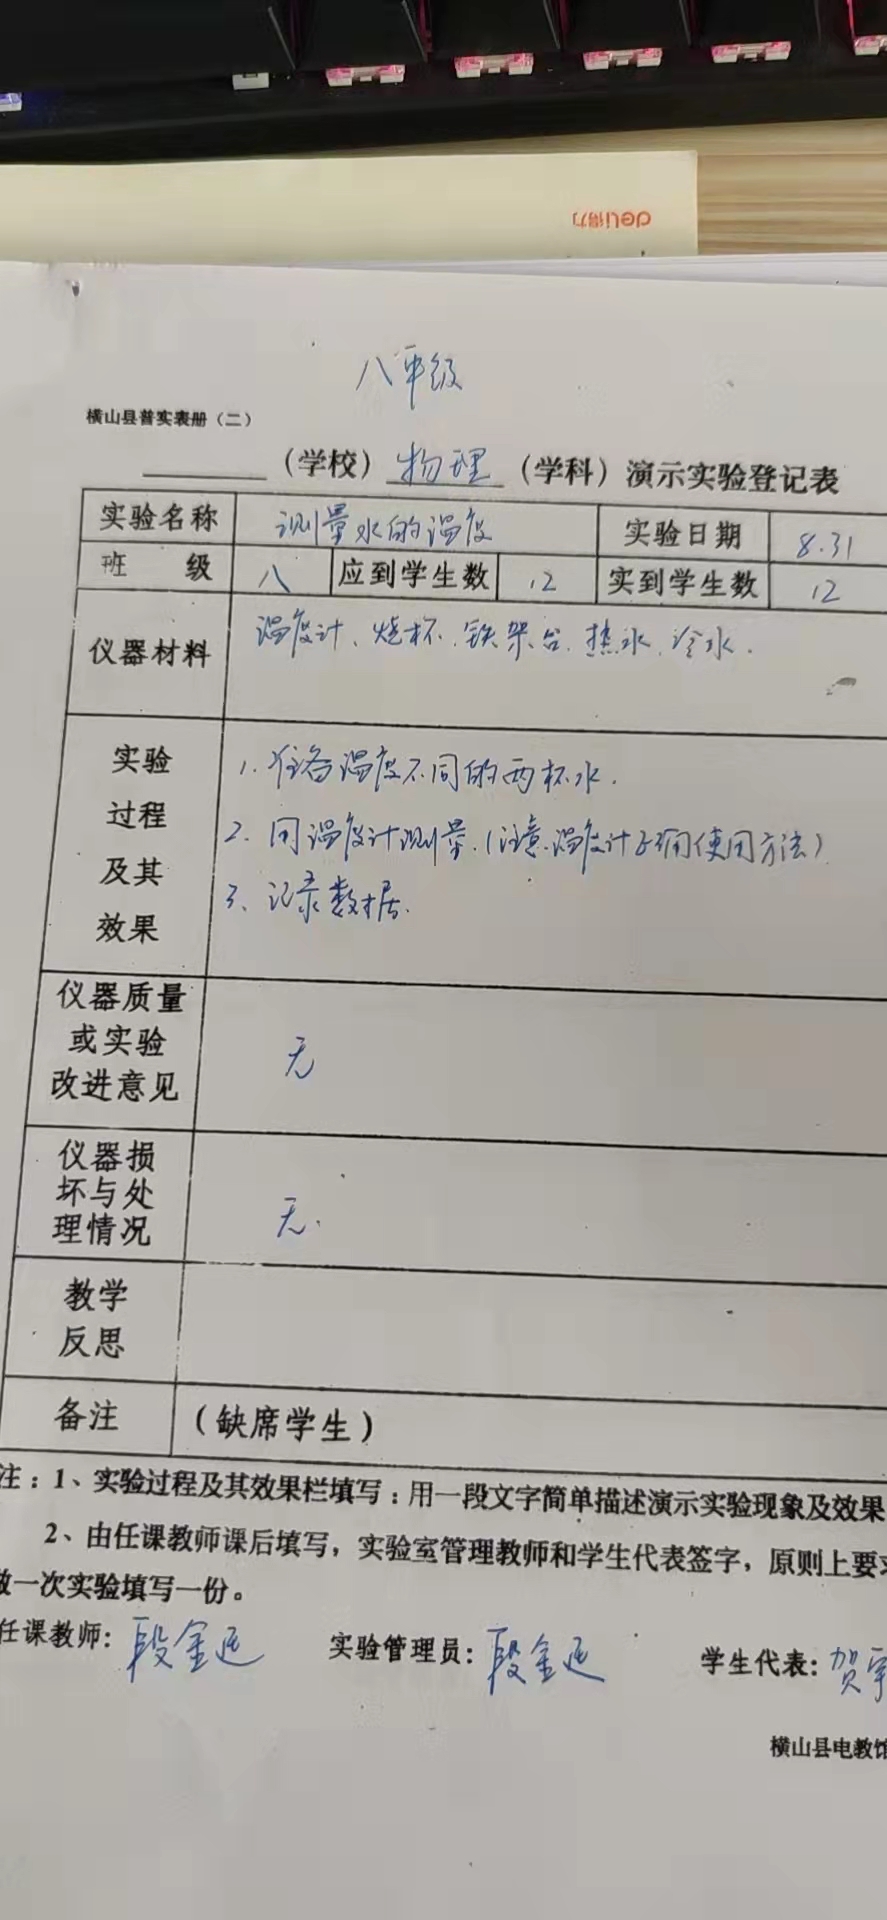 deli得力
八年级
横山县普实表册（二）
（学校）物理（学科）演示实验登记表
实验名称 测量水的温度 实验日期 8.31
班 级 八 应到学生数 12 实到学生数 12
仪器材料 温度计、烧杯、铁架台、热水、冷水.
实验
过程
及其
效果
1. 准备温度不同的两杯水.
2. 用温度计测量.(注意温度计正确使用方法)
3、记录数据.
仪器质量
或实验
改进意见
无
仪器损
坏与处
理情况
无.
教学
反思
备注 （缺席学生）
注：1、实验过程及其效果栏填写：用一段文字简单描述演示实验现象及效果
2、由任课教师课后填写，实验室管理教师和学生代表签字，原则上要求
做一次实验填写一份。
任课教师：段金延 实验管理员：段金延 学生代表：贺宇
横山县电教馆